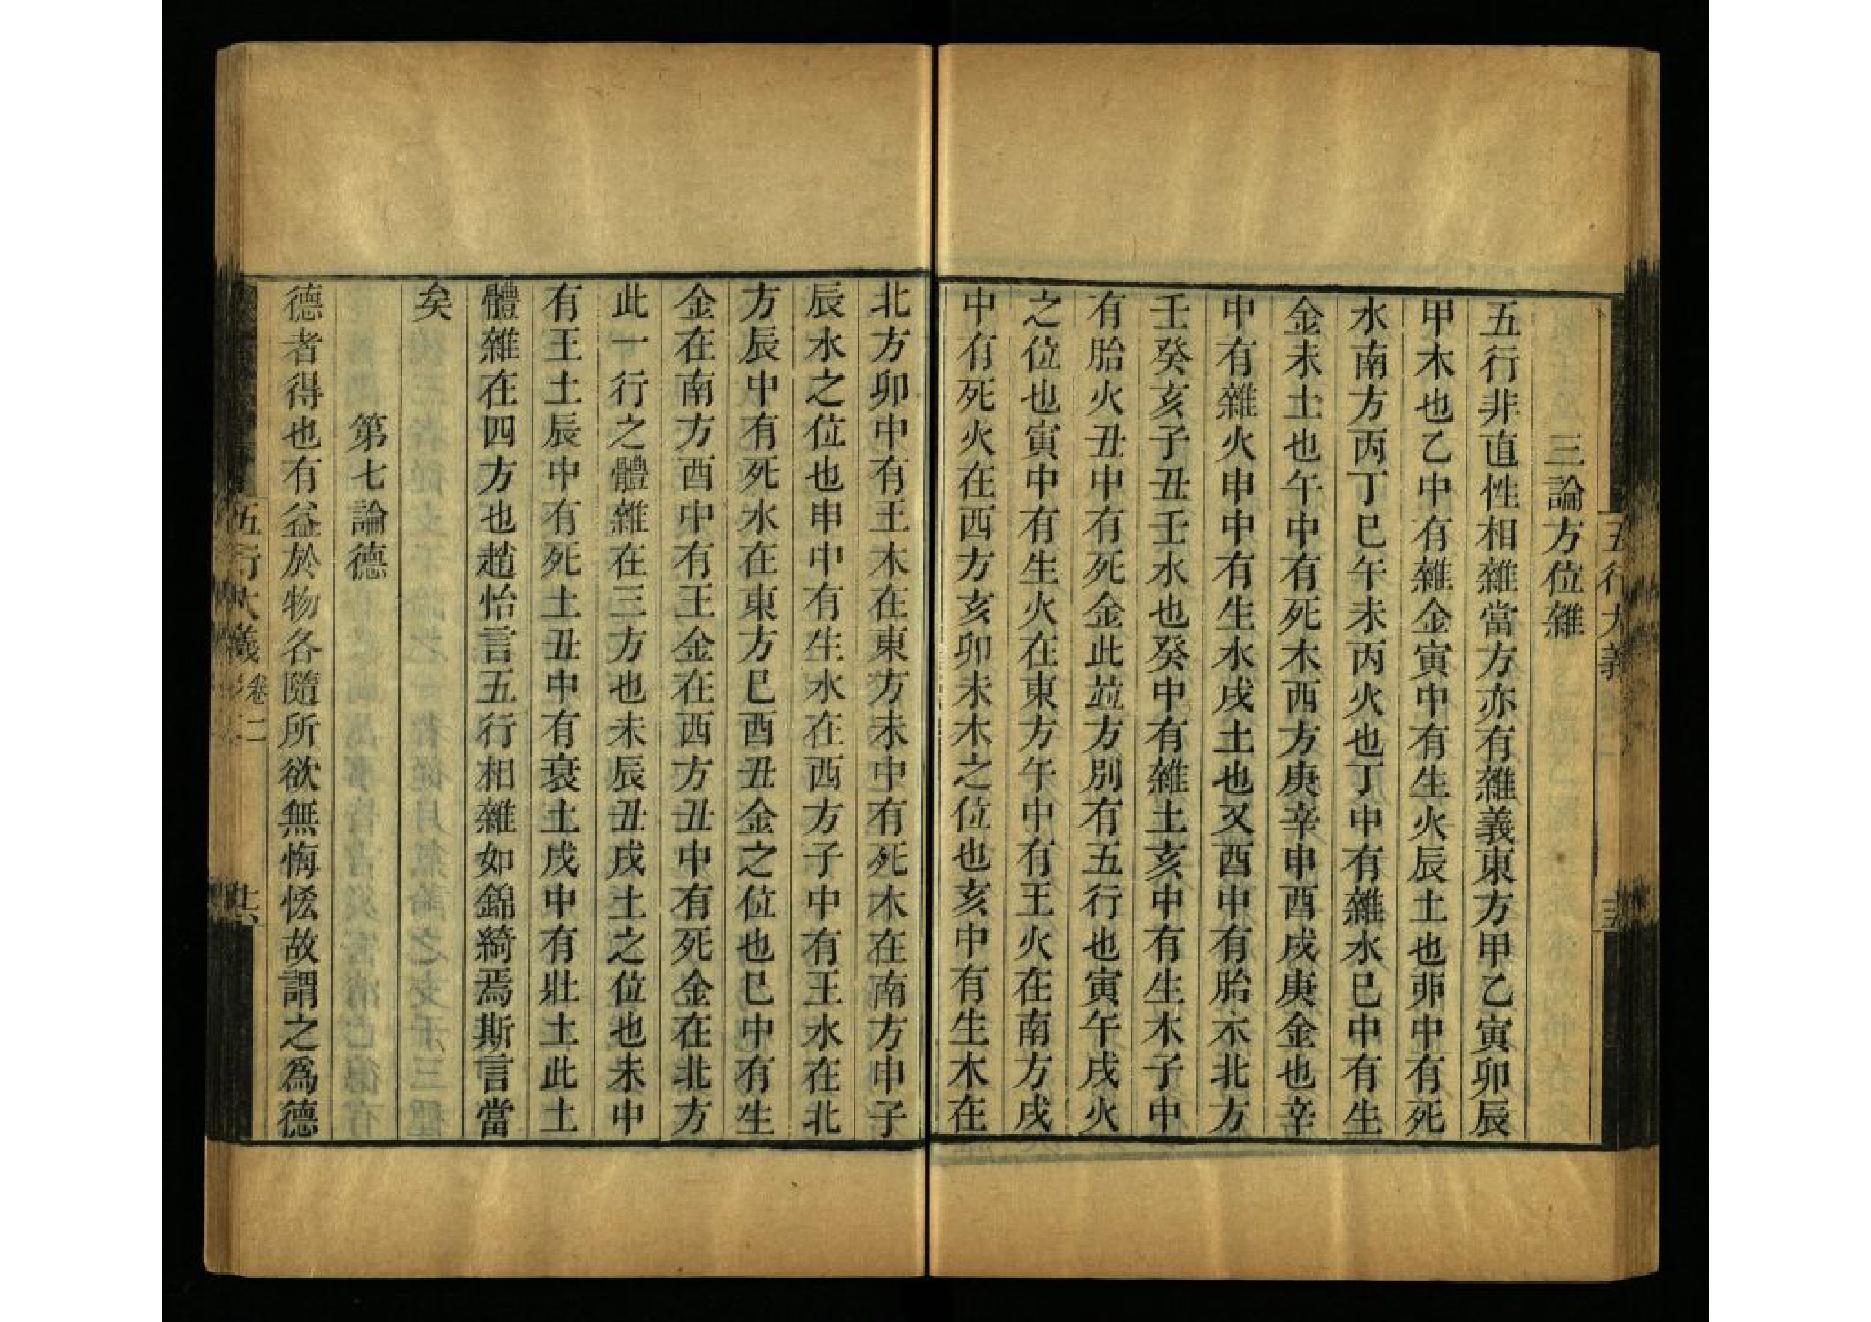 三論方位雜
五行非直性相雜當方亦有雜義東方甲乙寅卯辰
甲木也乙中有雜金寅中有生火辰土也卯中有死
水南方丙丁巳午未丙火也丁中有雜水巳中有生
金未土也午中有死木西方庚辛申酉戌庚金也辛
中有雜火申中有生水戌土也又酉中有胎木北方
壬癸亥子丑壬水也癸中有雜土亥中有生木子中
有胎火丑中有死金此並方別有五行也寅午戌火
之位也寅中有生火在東方午中有王火在南方戌
中有死火在西方亥卯未木之位也亥中有生木在
北方卯中有王木在東方未中有死木在南方申子
辰水之位也申中有生水在西方子中有王水在北
方辰中有死水在東方巳酉丑金之位也巳中有生
金在南方酉中有王金在西方丑中有死金在北方
此一行之體雜在三方也未辰丑戌土之位也未中
有王土辰中有死土丑中有衰土戌中有壯土此土
體雜在四方也趙怡言五行相雜如錦綺焉斯言當
矣
第七論德
德者得也有益於物各隨所欲無悔恡故謂之爲德
五行大義 卷二 共